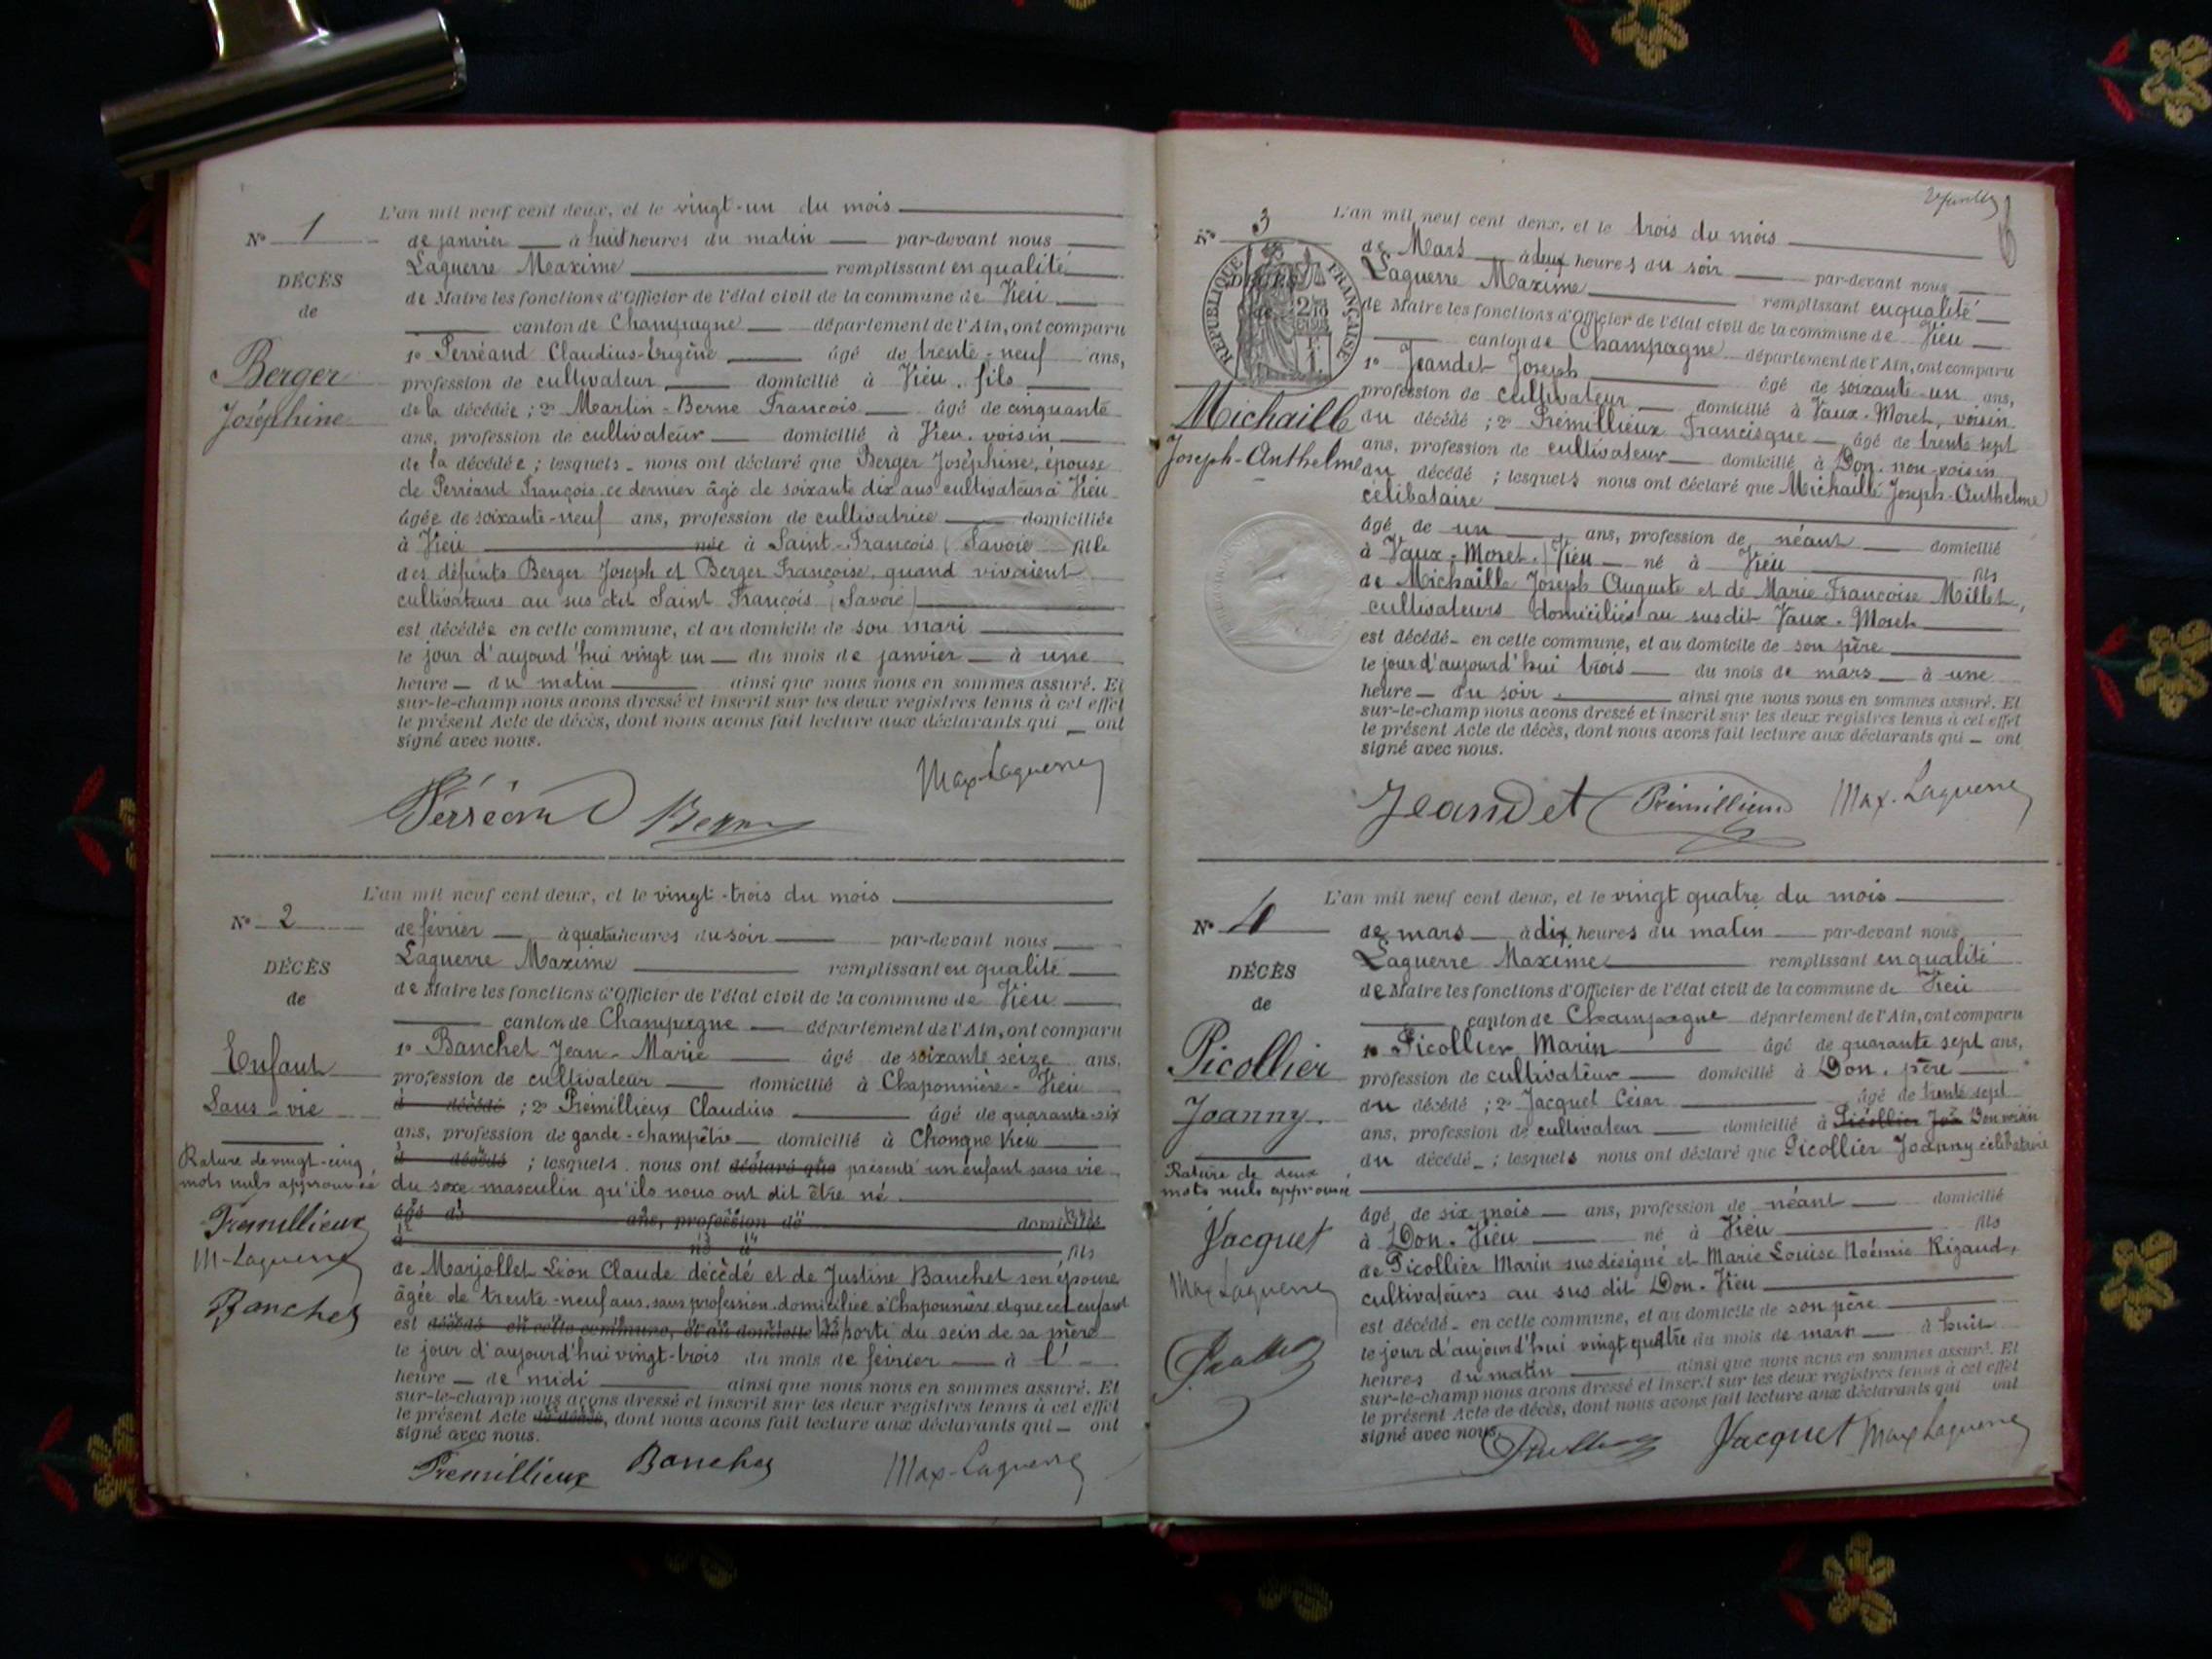 L'an mil neuf cent deux, et le vingt-un du mois
N° 1
de janvier à huit heures du matin par-devant nous
Laguerre Maxime remplissant en qualité
DÉCÈS
de Maire les fonctions d'Officier de l'état civil de la commune de Vieu
de
canton de Champagne département de l'Ain, ont comparu
1° Perréand Claudius-Eugène âgé de trente-neuf ans,
Berger
profession de cultivateur domicilié à Vieu, fils
Joséphine
de la décédée ; 2° Martin-Berne François âgé de cinquante
ans, profession de cultivateur domicilié à Vieu, voisin
de la décédée ; lesquels nous ont déclaré que Berger Joséphine, épouse
de Perréand François, ce dernier âgé de soixante dix ans cultivateur à Vieu
âgée de soixante-neuf ans, profession de cultivatrice domiciliée
à Vieu née à Saint-François (Savoie fille
des défunts Berger Joseph et Berger Françoise, quand vivaient
cultivateurs au sus dit Saint François (Savoie)
est décédée en cette commune, et au domicile de son mari
le jour d'aujourd'hui vingt un du mois de janvier à une
heure du matin ainsi que nous nous en sommes assuré. Et
sur-le-champ nous avons dressé et inscrit sur les deux registres tenus à cet effet
le présent Acte de décès, dont nous avons fait lecture aux déclarants qui ont
signé avec nous.
Perréand Berne Max-Laguerre
L'an mil neuf cent deux, et le vingt-trois du mois
N° 2
de février à quatre heures du soir par-devant nous
Laguerre Maxime remplissant en qualité
DÉCÈS
de Maire les fonctions d'Officier de l'état civil de la commune de Vieu
de
canton de Champagne département de l'Ain, ont comparu
1° Banchet Jean-Marie âgé de soixante seize ans,
Enfant
profession de cultivateur domicilié à Chaponnière-Vieu
Sans-vie
d décédé ; 2° Prémillieux Claudius âgé de quarante-six
ans, profession de garde-champêtre domicilié à Chongne Vieu
d décédé ; lesquels nous ont déclaré que présenté un enfant sans vie
Rature de vingt-cinq
mots nuls approuvée
du sexe masculin qu'ils nous ont dit être né
Premillieux
âgé de ans, profession de domicilié
à né à fils
M-Laguerre
de Marjollet Léon Claude décédé et de Justine Banchet son épouse
Banchet
âgée de trente-neuf ans, sans profession, domiciliée à Chaponnière et que cet enfant
est décédé en cette commune, et au domicile de sorti du sein de sa mère
le jour d'aujourd'hui vingt-trois du mois de février à l'
heure de midi ainsi que nous nous en sommes assuré. Et
sur-le-champ nous avons dressé et inscrit sur les deux registres tenus à cet effet
le présent Acte de décès, dont nous avons fait lecture aux déclarants qui ont
signé avec nous.
Premillieux Banchet Max-Laguerre
L'an mil neuf cent deux, et le trois du mois
N° 3
de Mars à deux heures du soir par-devant nous
Laguerre Maxime remplissant en qualité
RÉPUBLIQUE FRANÇAISE
DÉCÈS
de Maire les fonctions d'Officier de l'état civil de la commune de Vieu
de
canton de Champagne département de l'Ain, ont comparu
1° Jeandet Joseph âgé de soixante-un ans,
profession de cultivateur domicilié à Vaux-Moret, voisin
Michaille
du décédé ; 2° Prémillieux Francisque âgé de trente sept
ans, profession de cultivateur domicilié à Don, non voisin
Joseph-Anthelme
du décédé ; lesquels nous ont déclaré que Michaille Joseph-Anthelme
célibataire
âgé de un ans, profession de néant domicilié
à Vaux-Moret, Vieu né à Vieu fils
de Michaille Joseph Auguste et de Marie Françoise Millet,
cultivateurs domiciliés au susdit Vaux-Moret
est décédé en cette commune, et au domicile de son père
le jour d'aujourd'hui trois du mois de mars à une
heure du soir ainsi que nous nous en sommes assuré. Et
sur-le-champ nous avons dressé et inscrit sur les deux registres tenus à cet effet
le présent Acte de décès, dont nous avons fait lecture aux déclarants qui ont
signé avec nous.
Jeandet Prémillieux Max. Laguerre
L'an mil neuf cent deux, et le vingt quatre du mois
N° 4
de mars à dix heures du matin par-devant nous
Laguerre Maxime remplissant en qualité
DÉCÈS
de Maire les fonctions d'Officier de l'état civil de la commune de Vieu
de
canton de Champagne département de l'Ain, ont comparu
1° Picollier Marin âgé de quarante sept ans,
Picollier
profession de cultivateur domicilié à Don, père
Joanny
du décédé ; 2° Jacquet César âgé de trente sept
ans, profession de cultivateur domicilié à Picollier Joa Don voisin
du décédé ; lesquels nous ont déclaré que Picollier Joanny célibataire
Rature de deux
mots nuls approuvée
âgé de six mois ans, profession de néant domicilié
Jacquet
à Don-Vieu né à Vieu fils
de Picollier Marin susdésigné et Marie Louise Noémie Rigaud,
Max Laguerre
cultivateurs au sus dit Don-Vieu
est décédé en cette commune, et au domicile de son père
le jour d'aujourd'hui vingt quatre du mois de mars à huit
heures du matin ainsi que nous nous en sommes assuré. Et
sur-le-champ nous avons dressé et inscrit sur les deux registres tenus à cet effet
le présent Acte de décès, dont nous avons fait lecture aux déclarants qui ont
signé avec nous.
Jacquet Max Laguerre